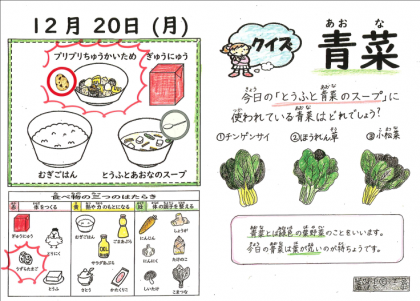 12月 20日 (月)
プリプリちゅうかいため ぎゅうにゅう
むぎごはん とうふとあおなのスープ
食べ物の三つのはたらき
赤 体をつくる 黄 熱や力のもとになる 緑 体の調子を整える
ぎゅうにゅう むぎごはん ごまあぶら にんにく しょうが
とりにく サラダあぶら にんじん たけのこ
うずらたまご
とうふ さとう かたくりこ しいたけ こまつな
クイズ
青菜
あおな
今日の「とうふと青菜のスープ」に
使われている青菜はどれでしょう?
①チンゲンサイ ②ほうれん草 ③小松菜
青菜とは緑色の葉野菜のことをいいます。
今日の青菜は葉が丸いのが特ちょうです。